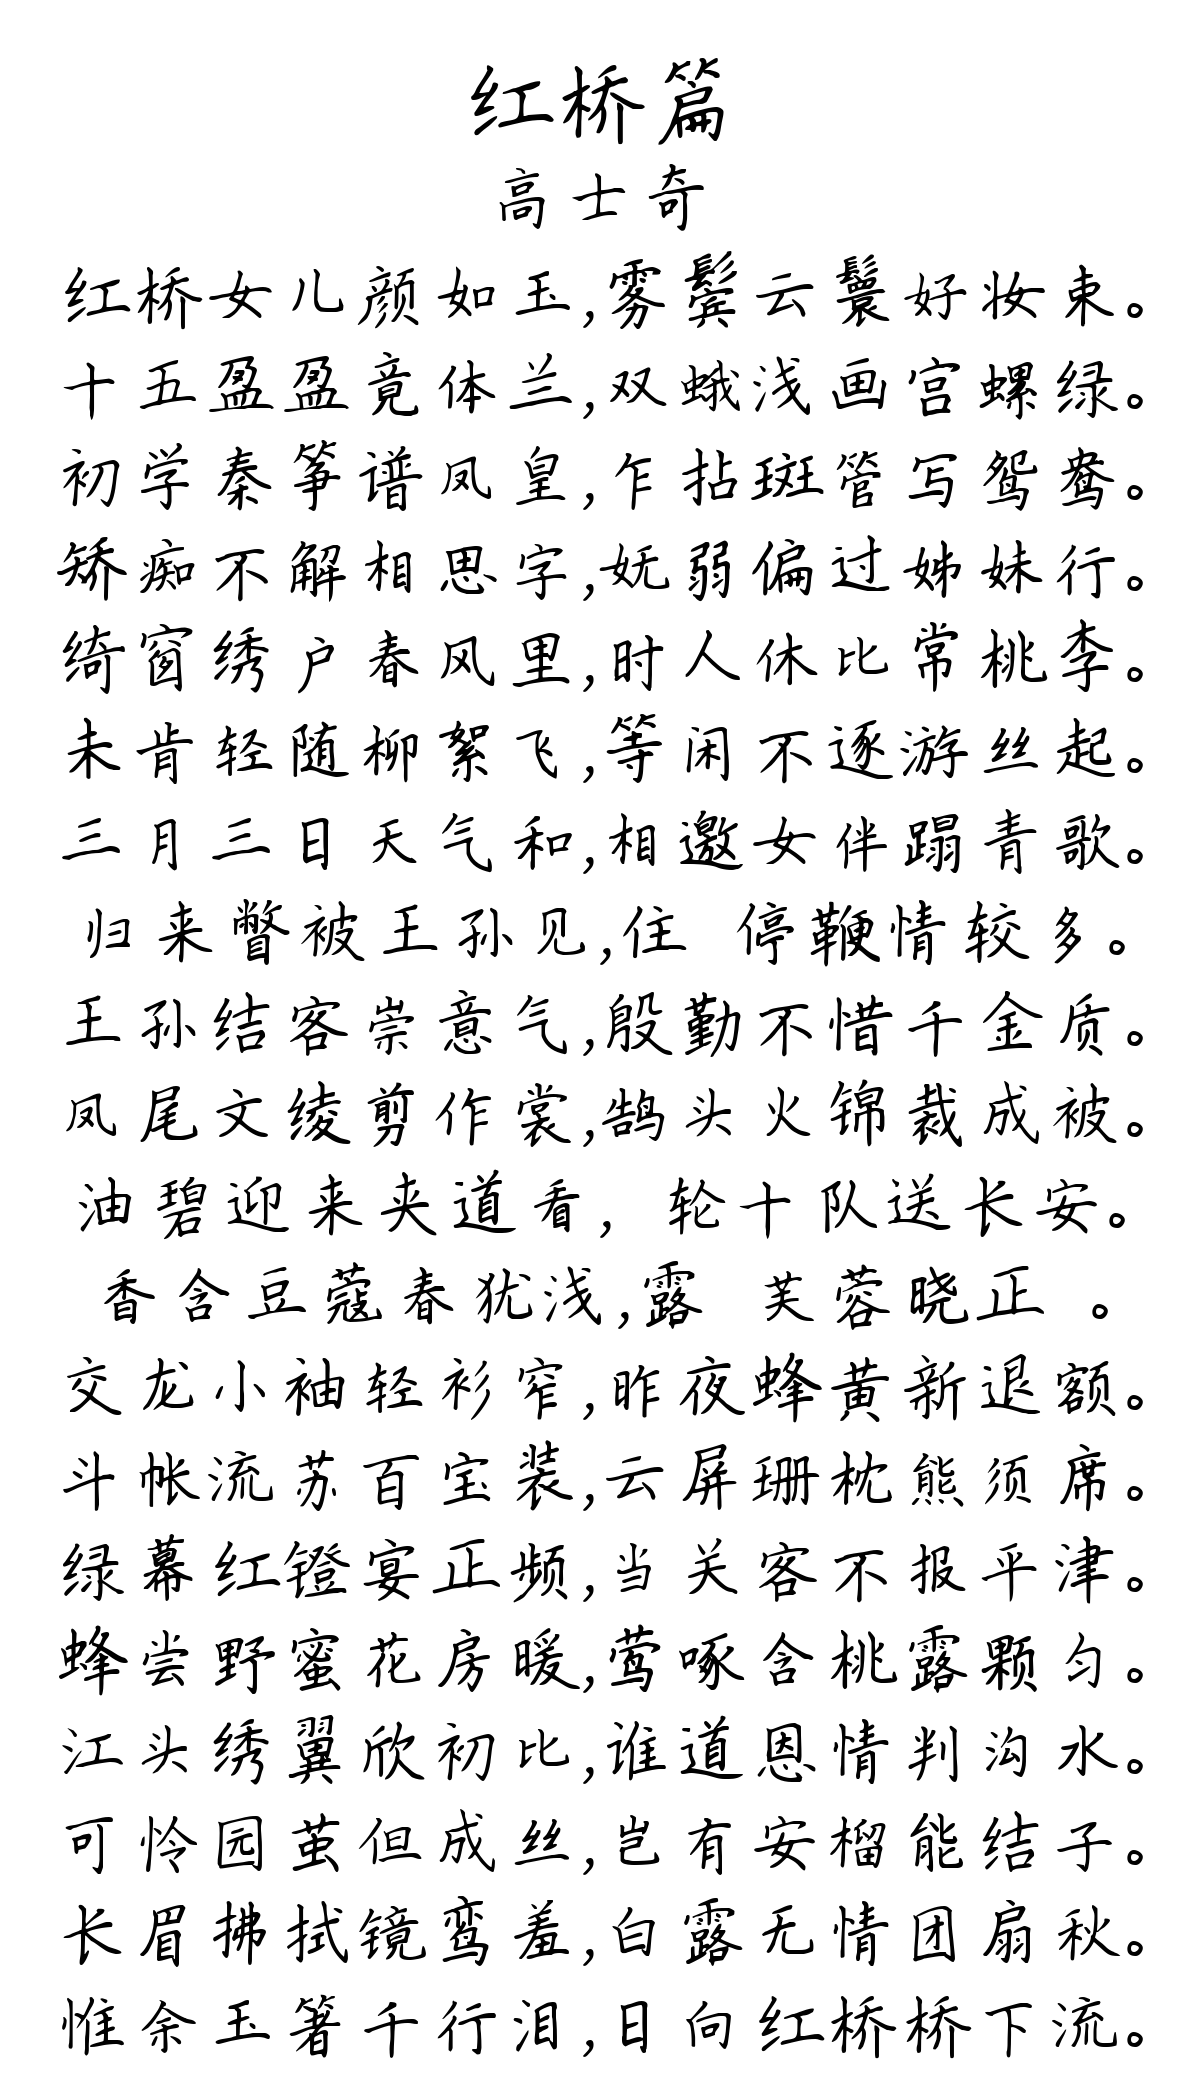 红桥篇
高士奇
红桥女儿颜如玉,雾鬓云鬟好妆束。
十五盈盈竟体兰,双蛾浅画宫螺绿。
初学秦筝谱凤皇,乍拈斑管写鸳鸯。
矫痴不解相思字,妩弱偏过姊妹行。
绮窗绣户春风里,时人休比常桃李。
未肯轻随柳絮飞,等闲不逐游丝起。
三月三日天气和,相邀女伴蹋青歌。
归来瞥被王孙见,住 停鞭情较多。
王孙结客崇意气,殷勤不惜千金质。
凤尾文绫剪作裳,鹄头火锦裁成被。
油碧迎来夹道看, 轮十队送长安。
香含豆蔻春犹浅,露 芙蓉晓正 。
交龙小袖轻衫窄,昨夜蜂黄新退额。
斗帐流苏百宝装,云屏珊枕熊须席。
绿幕红镫宴正频,当关客不报平津。
蜂尝野蜜花房暖,莺啄含桃露颗匀。
江头绣翼欣初比,谁道恩情判沟水。
可怜园茧但成丝,岂有安榴能结子。
长眉拂拭镜鸾羞,白露无情团扇秋。
惟余玉箸千行泪,日向红桥桥下流。